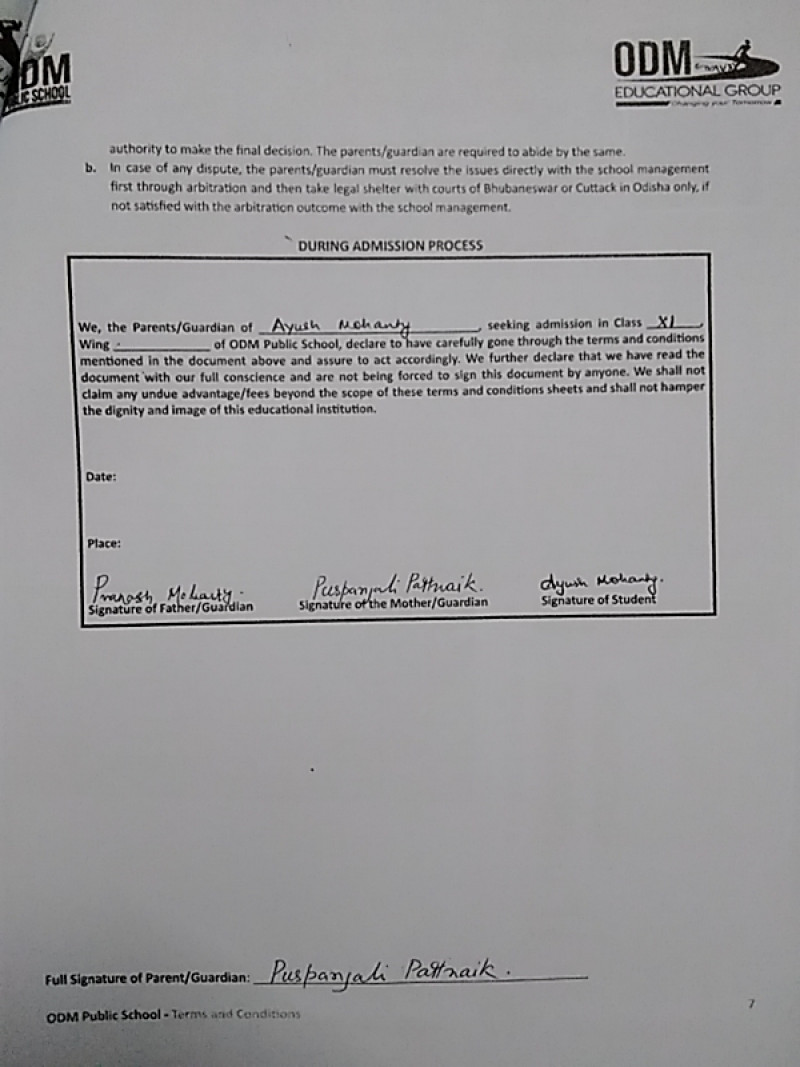 ODM
PUBLIC SCHOOL
ODM
EDUCATIONAL GROUP
Changing your Tomorrow
authority to make the final decision. The parents/guardian are required to abide by the same.
b. In case of any dispute, the parents/guardian must resolve the issues directly with the school management
first through arbitration and then take legal shelter with courts of Bhubaneswar or Cuttack in Odisha only, if
not satisfied with the arbitration outcome with the school management.
DURING ADMISSION PROCESS
We, the Parents/Guardian of Ayush Mohanty, seeking admission in Class XI,
Wing of ODM Public School, declare to have carefully gone through the terms and conditions
mentioned in the document above and assure to act accordingly. We further declare that we have read the
document with our full conscience and are not being forced to sign this document by anyone. We shall not
claim any undue advantage/fees beyond the scope of these terms and conditions sheets and shall not hamper
the dignity and image of this educational institution.
Date:
Place:
Mohanty. Puspanjali Pattnaik. Ayush Mohanty.
Signature of Father/Guardian Signature of the Mother/Guardian Signature of Student
Full Signature of Parent/Guardian: Puspanjali Pattnaik.
ODM Public School - Terms and Conditions 7